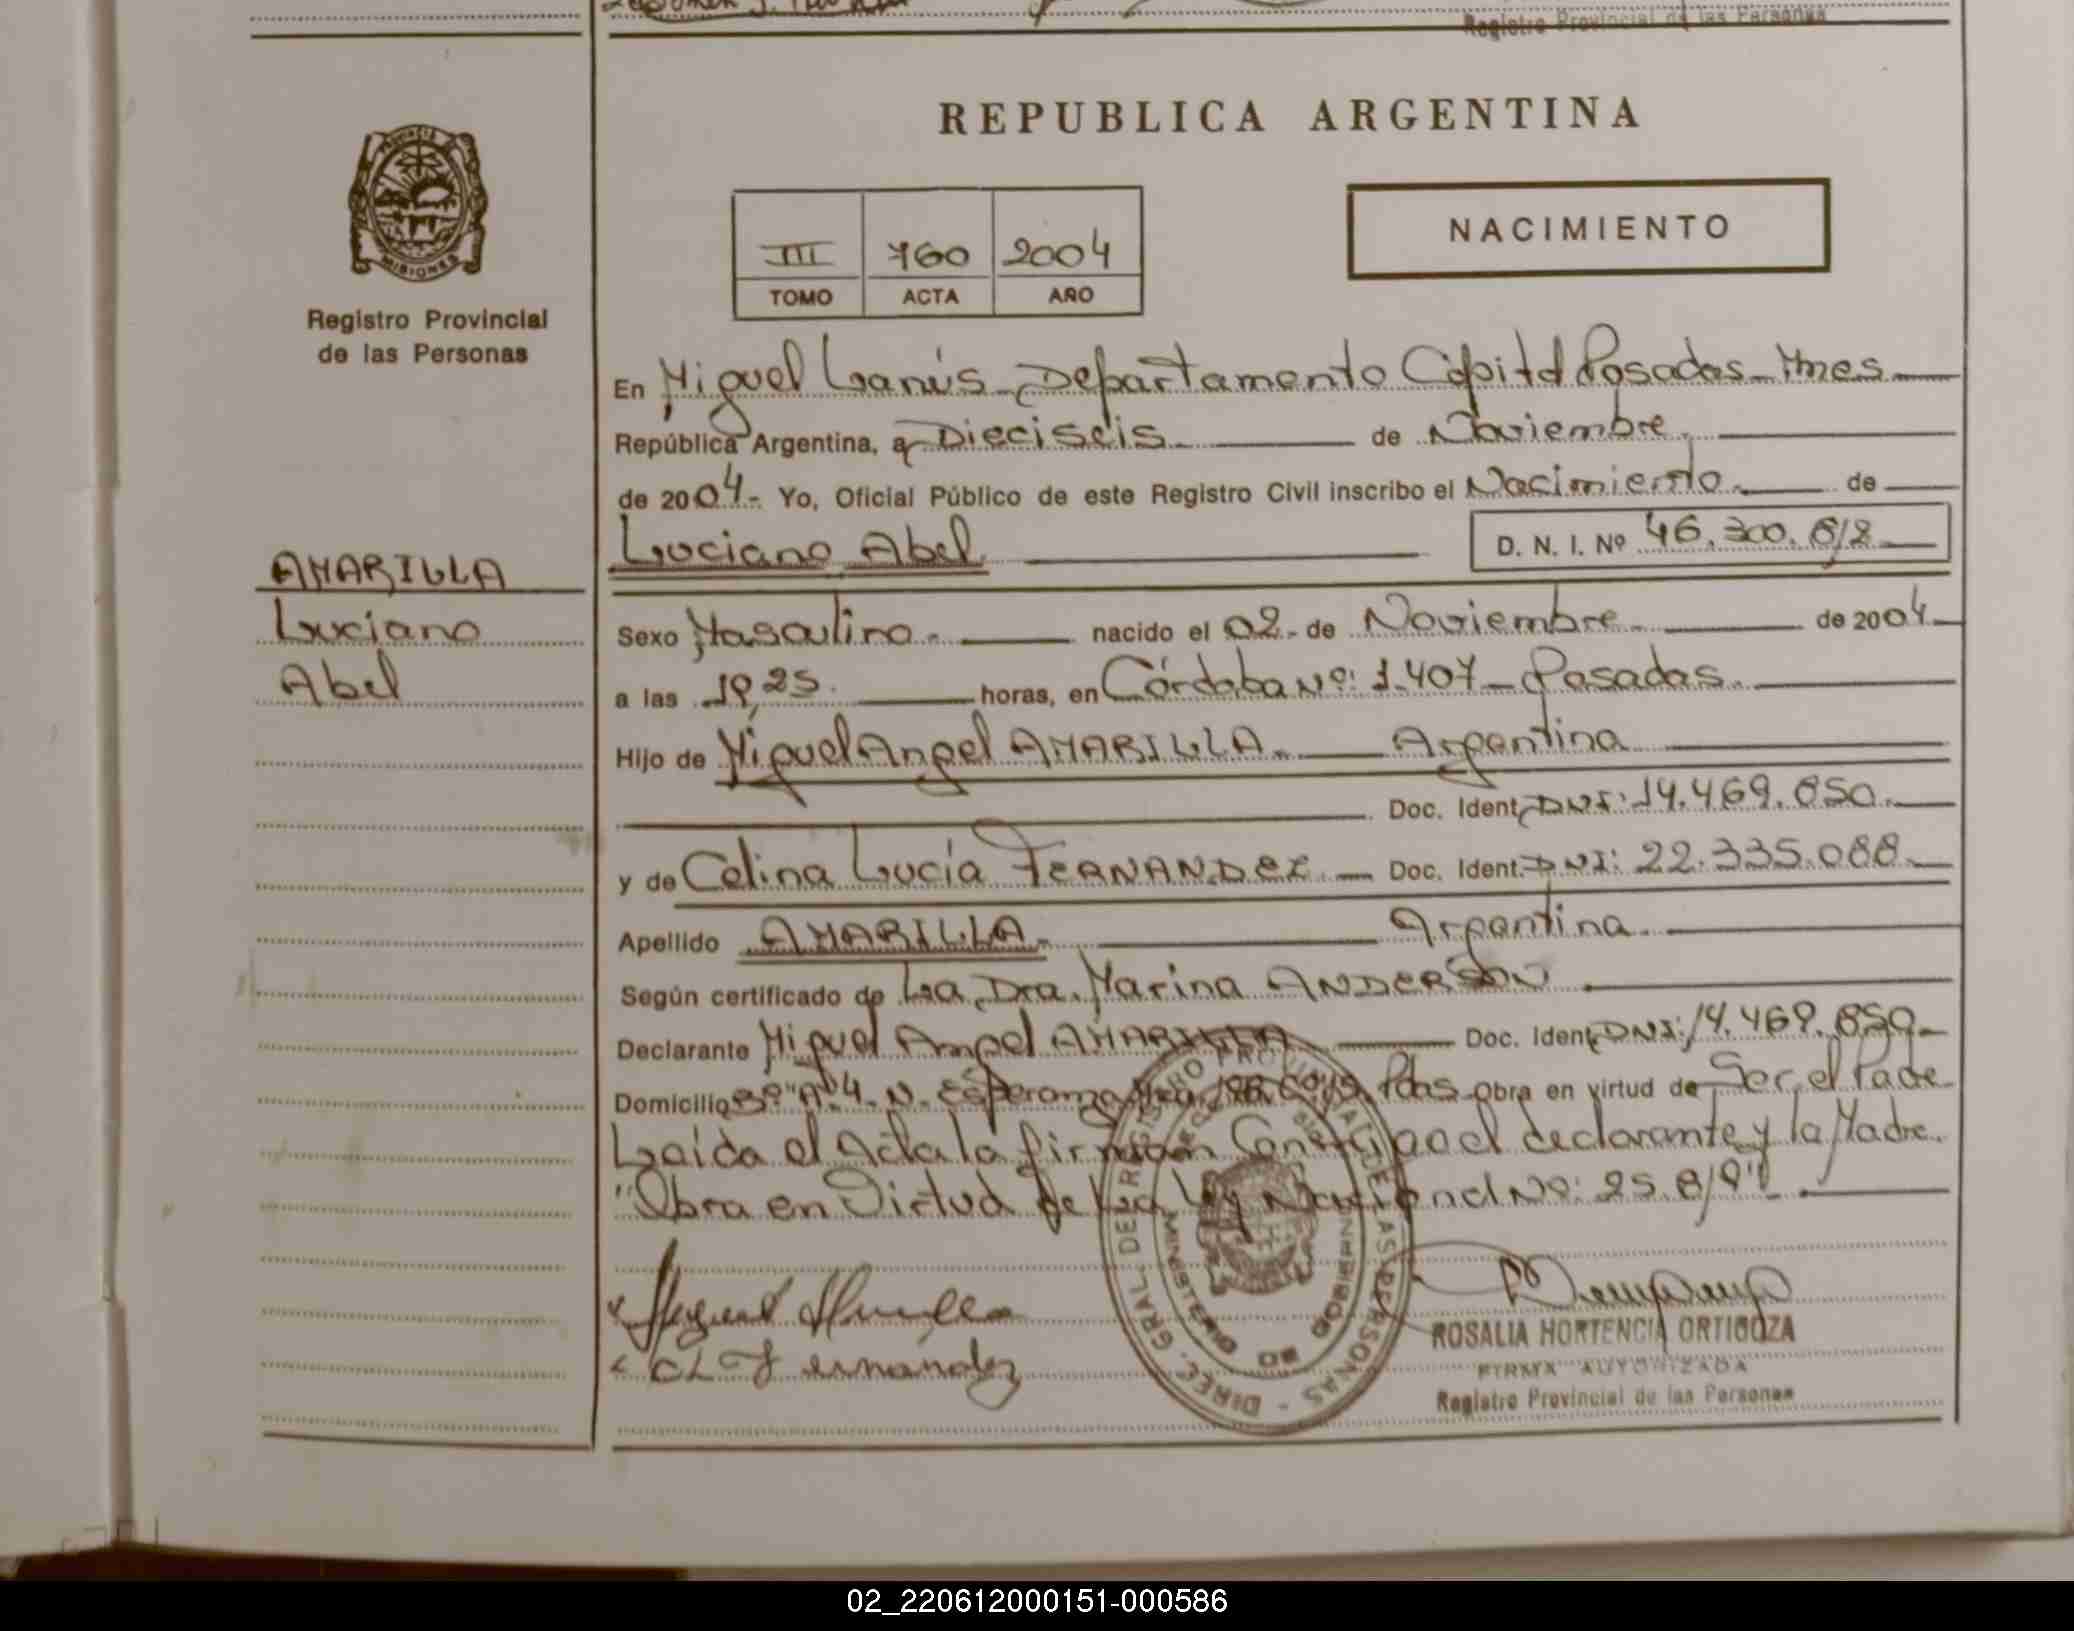 Registro Provincial de las Personas
REPUBLICA ARGENTINA
PROVINCIA DE
MISIONES
Registro Provincial
de las Personas
III 760 2004
TOMO ACTA AÑO
NACIMIENTO
En Miguel Lanús - Departamento Capital Posadas - Mnes
República Argentina, a Dieciseis de Noviembre
de 2004- Yo, Oficial Público de este Registro Civil inscribo el Nacimiento de
Luciano Abel
D. N. I. Nº 46.300.812
AMARILLA
Luciano
Abel
Sexo Masculino.- nacido el 02- de Noviembre de 2004
a las 19,25. horas, en Córdoba Nº: 1.407 - Posadas.
Hijo de Miguel Angel AMARILLA.- Argentina
Doc. Ident. DNI: 14.469.850.
y de Celina Lucía FERNANDEZ.- Doc. Ident. DNI: 22.335.088.
Apellido AMARILLA.- Argentina.
Según certificado de La Dra. Marina ANDERSON
Declarante Miguel Angel AMARILLA Doc. Ident. DNI: 14.469.850-
Domicilio 3º "A" 4. N. Esperanza Pdas. Obra en virtud de Ser el Padre
Leída el Acta la firman Conmigo el declarante y la Madre.
"Obra en Virtud de La Ley Nacional Nº: 25.819"
C L Fernández
DIREC. GRAL. DEL REGISTRO PROVINCIAL DE LAS PERSONAS
MINISTERIO DE GOBIERNO
ROSALIA HORTENCIA ORTIGOZA
FIRMA AUTORIZADA
Registro Provincial de las Personas
02_220612000151-000586